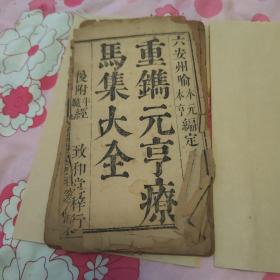 六安州喻本元本亨編定
重鐫元亨療
馬集大全
後附牛駝經 致和堂梓行